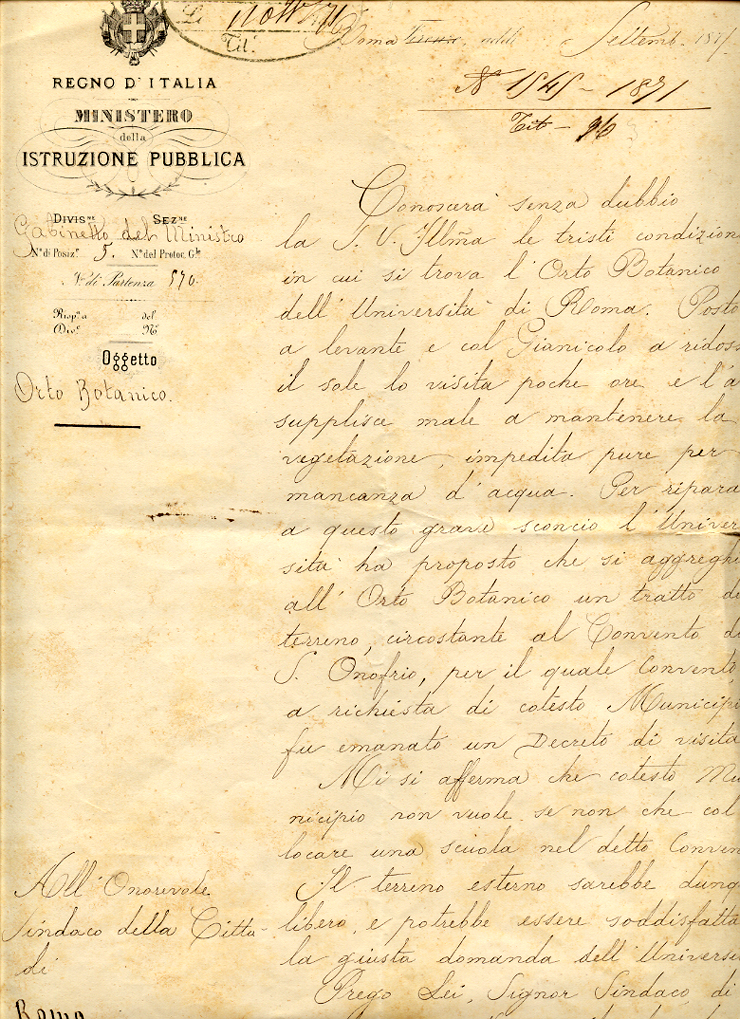 Li 11 Ott 71
Tit.
Roma Firenze, addì Settemb. 187
N° 1545 - 1871
Tit - 96
REGNO D'ITALIA
MINISTERO
della
ISTRUZIONE PUBBLICA
DIVIS.NE SEZ.NE
Gabinetto del Ministro
N° di Posiz.e 5. N° del Protoc. G.le
N° di Partenza 570.
Risp.a a del
Div.e N°
Oggetto
Orto Botanico.
Conoscerà senza dubbio
la S. V. Illm̃a le tristi condizioni
in cui si trova l'Orto Botanico
dell'Università di Roma. Posto
a levante e col Gianicolo a ridoss
il sole lo visita poche ore e l'a
supplisce male a mantenere la
vegetazione, impedita pure per
mancanza d'acqua. Per ripara
a questo grave sconcio l'Univer
sità ha proposto che si aggreghi
all'Orto Botanico un tratto di
terreno, circostante al Convento di
S. Onofrio, per il quale Convento,
a richiesta di cotesto Municipi
fu emanato un Decreto di visita
Mi si afferma che cotesto Mu
nicipio non vuole se non che col
locare una scuola nel detto Conven
Il terreno esterno sarebbe dunq
libero, e potrebbe essere soddisfatta
la giusta domanda dell'Universi
Prego Lei, Signor Sindaco, di
All'Onorevole
Sindaco della Città
di
Roma